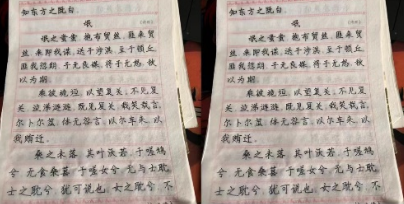 知东方之既白。
氓
氓之蚩蚩,抱布贸丝。匪来贸
丝,来即我谋。送子涉淇,至于顿丘。
匪我愆期,子无良媒。将子无怒,秋
以为期。
乘彼垝垣,以望复关。不见复
关,泣涕涟涟。既见复关,载笑载言。
尔卜尔筮,体无咎言。以尔车来,以
我贿迁。
桑之未落,其叶沃若。于嗟鸠
兮,无食桑葚!于嗟女兮,无与士耽
士之耽兮,犹可说也。女之耽兮,不
知东方之既白。
氓
氓之蚩蚩,抱布贸丝。匪来贸
丝,来即我谋。送子涉淇,至于顿丘。
匪我愆期,子无良媒。将子无怒,秋
以为期。
乘彼垝垣,以望复关。不见复
关,泣涕涟涟。既见复关,载笑载言。
尔卜尔筮,体无咎言。以尔车来,以
我贿迁。
桑之未落,其叶沃若。于嗟鸠
兮,无食桑葚!于嗟女兮,无与士耽
士之耽兮,犹可说也。女之耽兮,不